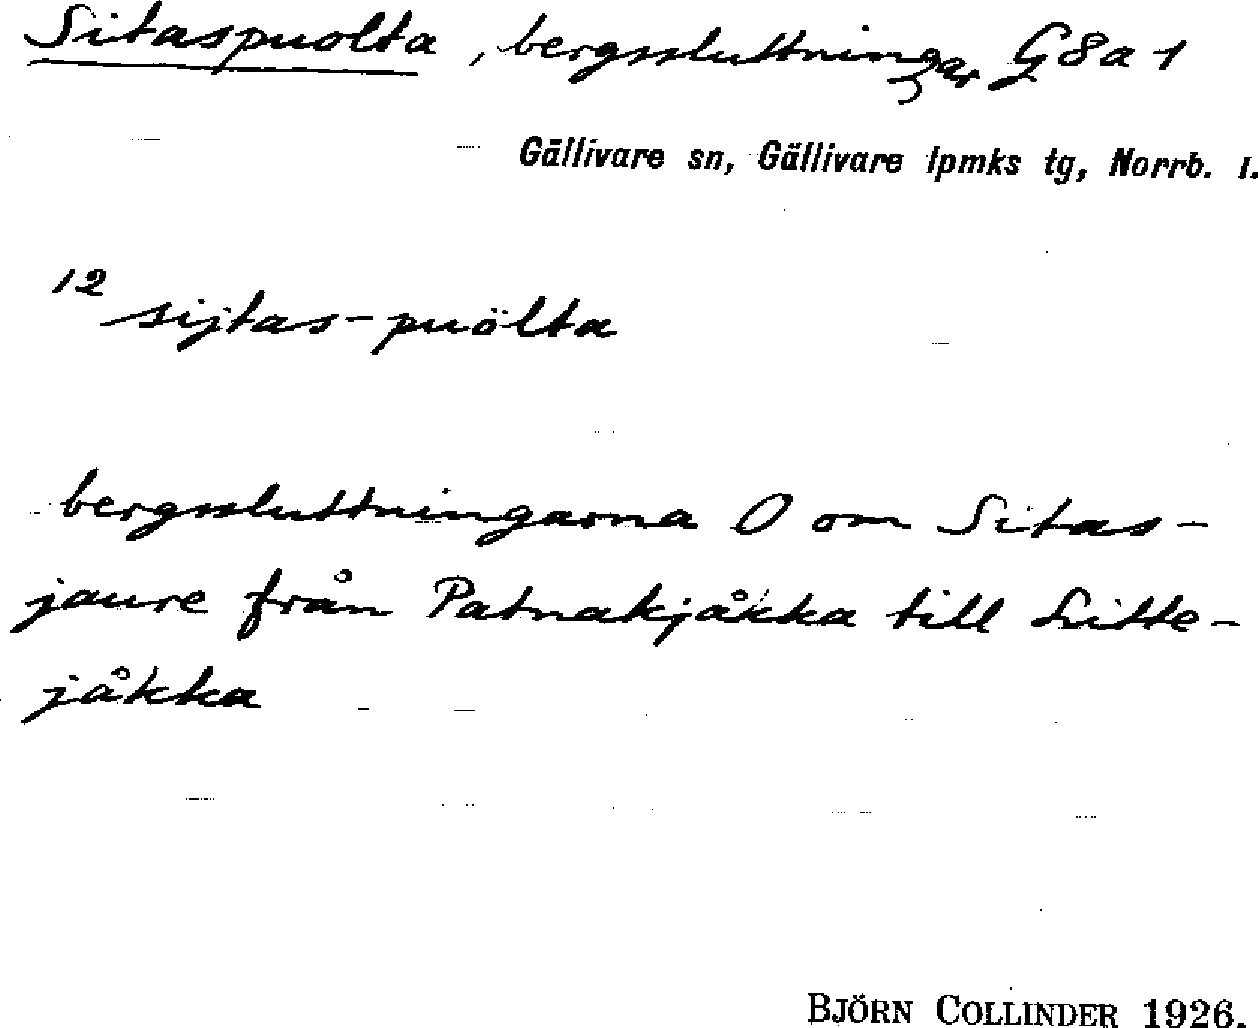 Sitaspuolta, bergssluttningar G8a1
Gällivare sn, Gällivare lpmks tg, Norrb. l.
12 sijtas-puölta
bergssluttningarna O om Sitas-
jaure från Patnakjåkka till Litte-
jåkka
BJÖRN COLLINDER 1926.